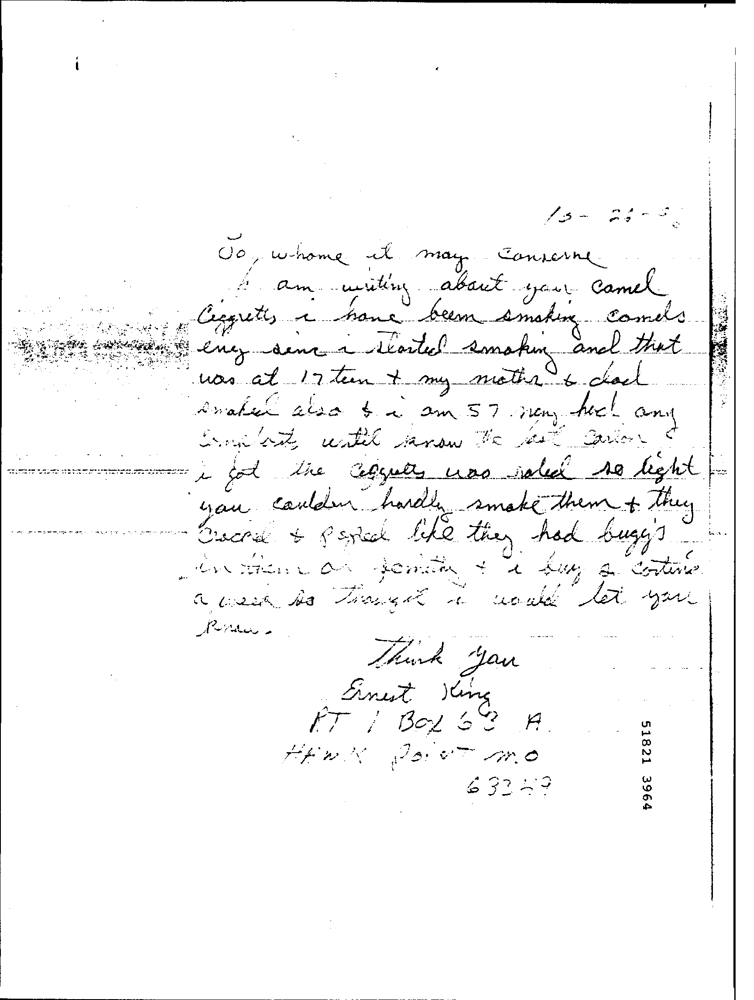 To, whome it may conserne
i am writing about your camel
Ciggretts i have been smoking camels
evey sinc i started smoking and that
was at 17 teen + my mother & dad
smoked also & i am 57 nevy hed any
until know the last carton
i got the ciggretts was roled so tight
you couldn hardly smoke them + they
cracred & poped like they had bugg's
in them or + i buy 2
a week so thought i would let you
know.
Thank You
Ernest King
RT 1 Box 63 A.
HAWK Point mo
51821 3964